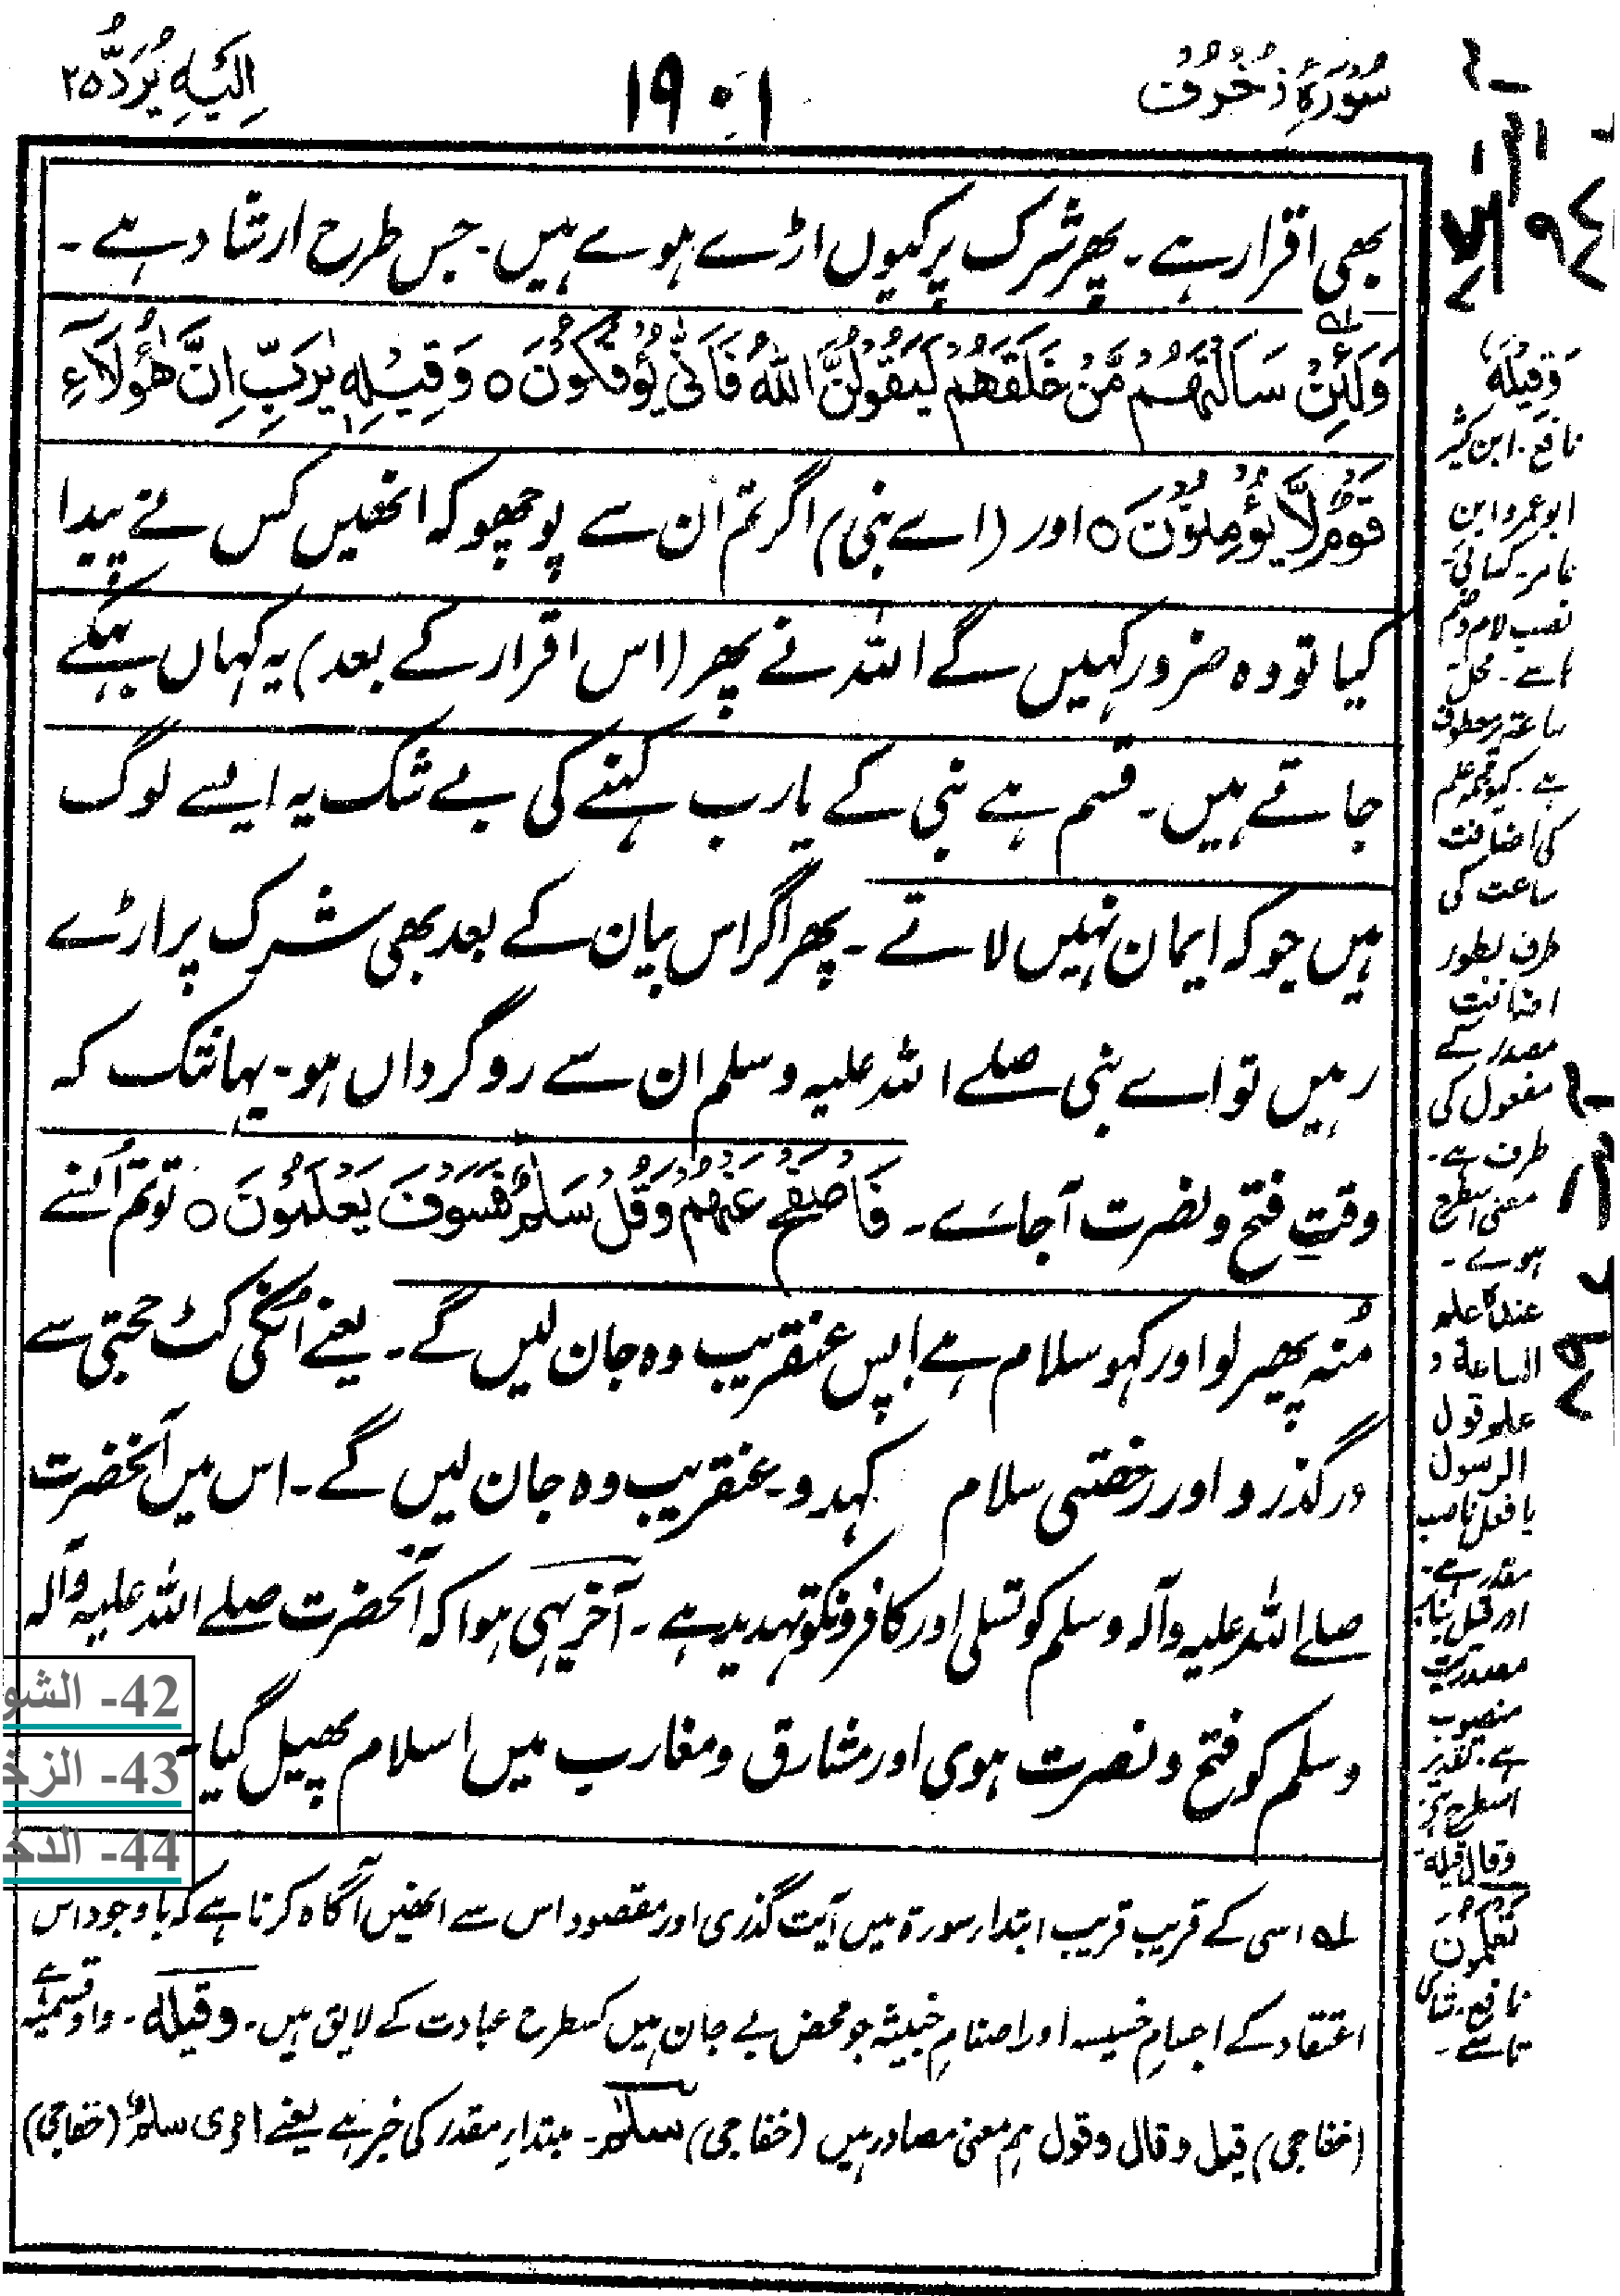 سُورَةُ زُخْرُف
۱۹۰۱
اِلَيْهِ يُرَدُّ ۲۵
بھی اقرار ہے ۔ پھر شرک پر کیوں اڑے ہوے ہیں ۔ جس طرح ارشاد ہے ۔
وَلَئِنْ سَاَلْتَهُمْ مَّنْ خَلَقَهُمْ لَيَقُوْلُنَّ اللّٰهُ فَاَنّٰى يُؤْفَكُوْنَ ۝ وَقِيْلِهٖ يٰرَبِّ اِنَّ هٰٓؤُلَآءِ
قَوْمٌ لَّا يُؤْمِنُوْنَ ۝ اور (اے نبی) اگر تم ان سے پوچھو کہ انھیں کس نے پیدا
کیا تو وہ ضرور کہیں گے اللہ نے پھر (اس اقرار کے بعد) یہ کہاں بہکے
جاتے ہیں ۔ قسم ہے نبی کے یارب کہنے کی بے شک یہ ایسے لوگ
ہیں جو کہ ایمان نہیں لاتے ۔ پھر اگر اس بیان کے بعد بھی شرک پر اڑے
رہیں تو اے نبی صلے اللہ علیہ وسلم ان سے روگرداں ہو ۔ یہانتک کہ
وقتِ فتح ونصرت آجاے ۔ فَاصْفَحْ عَنْهُمْ وَقُلْ سَلٰمٌ فَسَوْفَ يَعْلَمُوْنَ ۝ تو تم اُنسے
مُنہ پھیر لو اور کہو سلام ہے اپس عنقریب وہ جان لیں گے ۔ یعنے انکی کٹ حجتی سے
درگذرو اور رخصتی سلام کہدو ۔ عنقریب وہ جان لیں گے ۔ اس میں آنحضرت
صلے اللہ علیہ وآلہ وسلم کو تسلی اور کافرونکو تہدید ہے ۔ آخر یہی ہوا کہ آنحضرت صلے اللہ علیہ وآلہ
وسلم کو فتح ونصرت ہوی اور مشارق ومغارب میں اسلام پھیل گیا ۔
لہ اسی کے قریب قریب ابتدار سورۃ میں آیت گذری اور مقصود اس سے انھیں آگاہ کرنا ہے کہ باوجود اس
اعتقاد کے اجسامِ خسیسہ اور اصنامِ خبیثہ جو محض بے جان ہیں کسطرح عبادت کے لایق ہیں ۔ وقیلہ ۔ واو قسمیہ ہے
(خفاجی) قیل وقال وقول ہم معنی مصادر ہیں (خفاجی) سلٰمٌ ۔ مبتدار مقدر کی خبر ہے یعنے امری سلٰمٌ (خفاجی)
وَقِيْلَهٗ
نافع . ابن کثیر
ابوعمرو ابن
عامر ۔ کسائی ۔
نصب لام وضم
ہاسے ۔ محل
ساعۃ پر معطوف
ہے ۔ کیونکہ علم
کی اضافت
ساعت کی
طرف بطور
اضافت
مصدر کے
مفعول کی
طرف ہے ۔
معنی اسطرح
ہوے ۔
عندہ علم
الساعة و
علم قول
الرسول
یا فعل ناصب
مقدر ہے ۔
اور قیل بنابر
مصدریت
منصوب
ہے ۔ تقدیر
اسطرح ہے
وقال قیلہ
تَعْلَمُوْنَ
نافع ۔ شامی
تاسے ۔
42- الشو
43- الزخ
44- الدخ